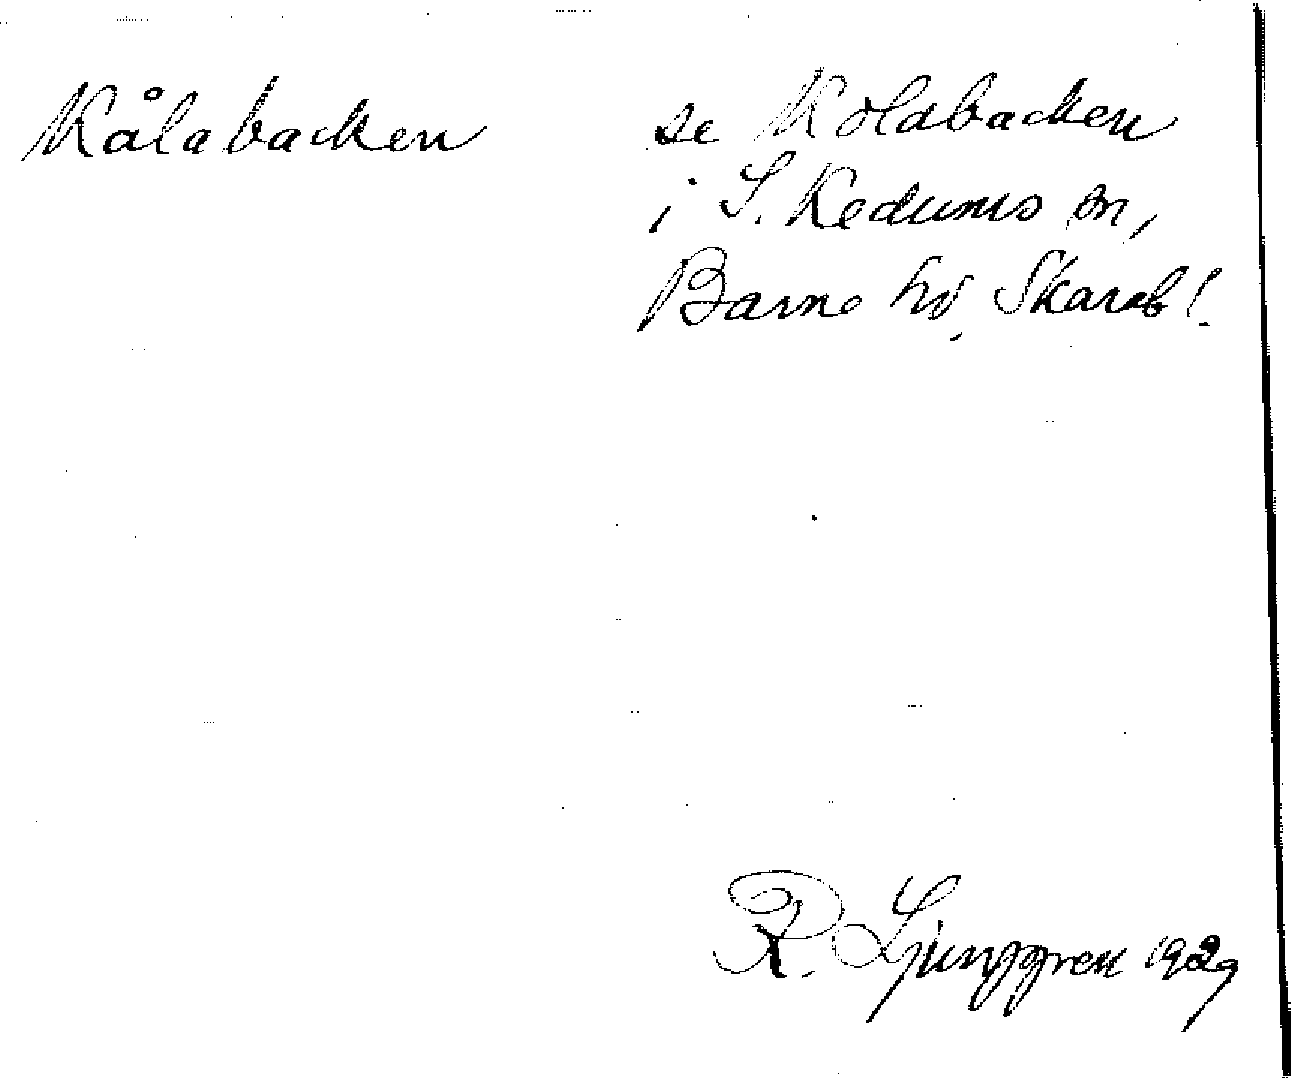 Kålabacken
se Kolabacken
i S. Kedums sn,
Barne hd, Skarab!.
R. Ljunggren 1929